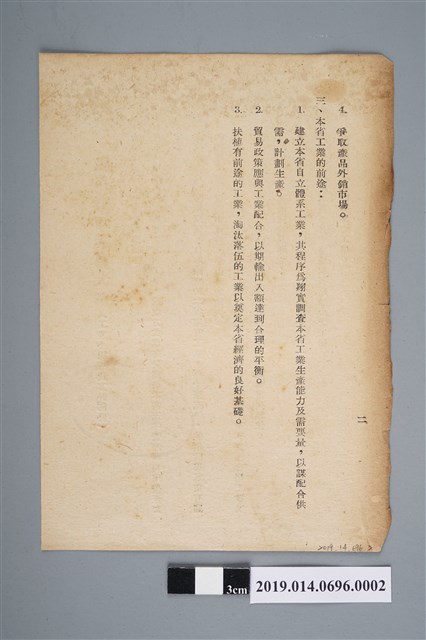 4. 爭取產品外銷市場。
三、本省工業的前途：
1. 建立本省自立體系工業，其程序爲翔實調查本省工業生產能力及需要量，以謀配合供
需，計劃生產。
2. 貿易政策應與工業配合，以期輸出入額達到合理的平衡。
3. 扶植有前途的工業，淘汰落伍的工業以奠定本省經濟的良好基礎。
二
2019.14.696.2
3cm
2019.014.0696.0002